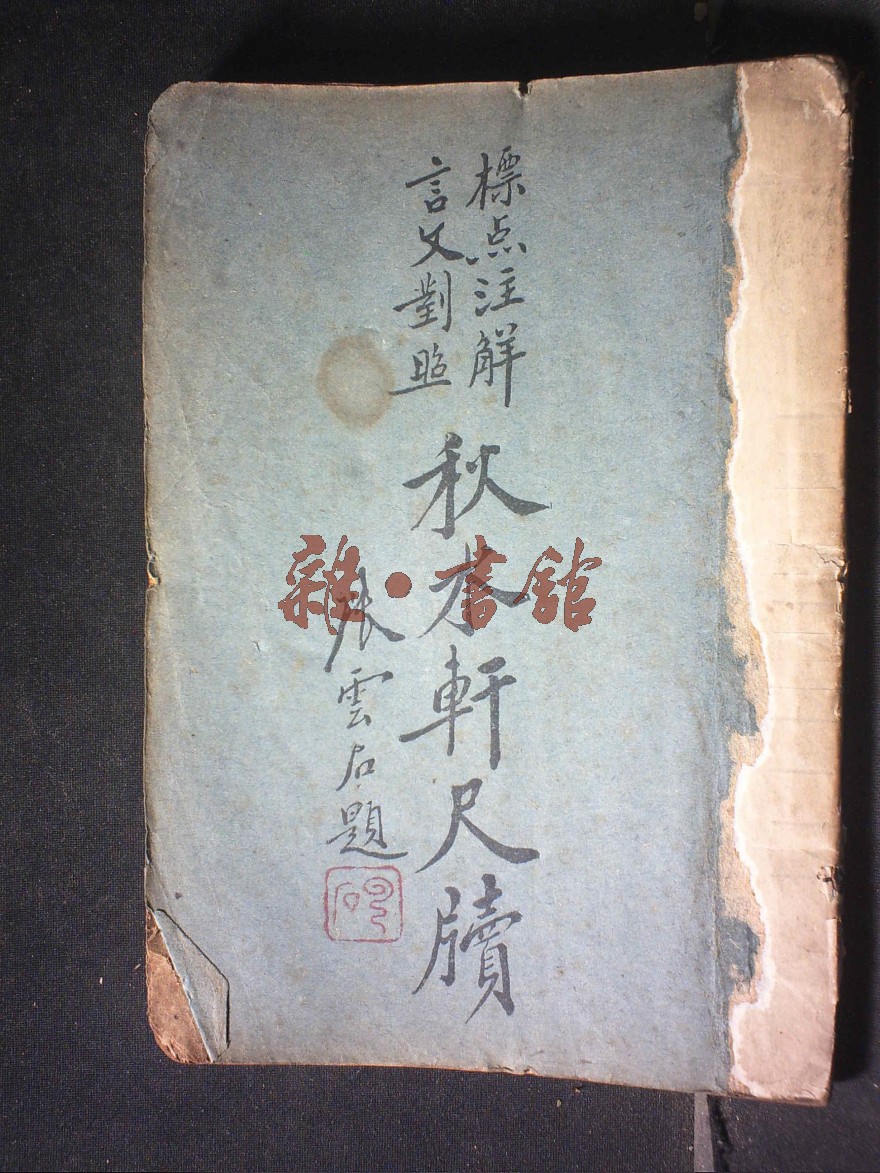 標点注解
言文對照
秋水軒尺牘
張雲石題
雲石
雜·書館